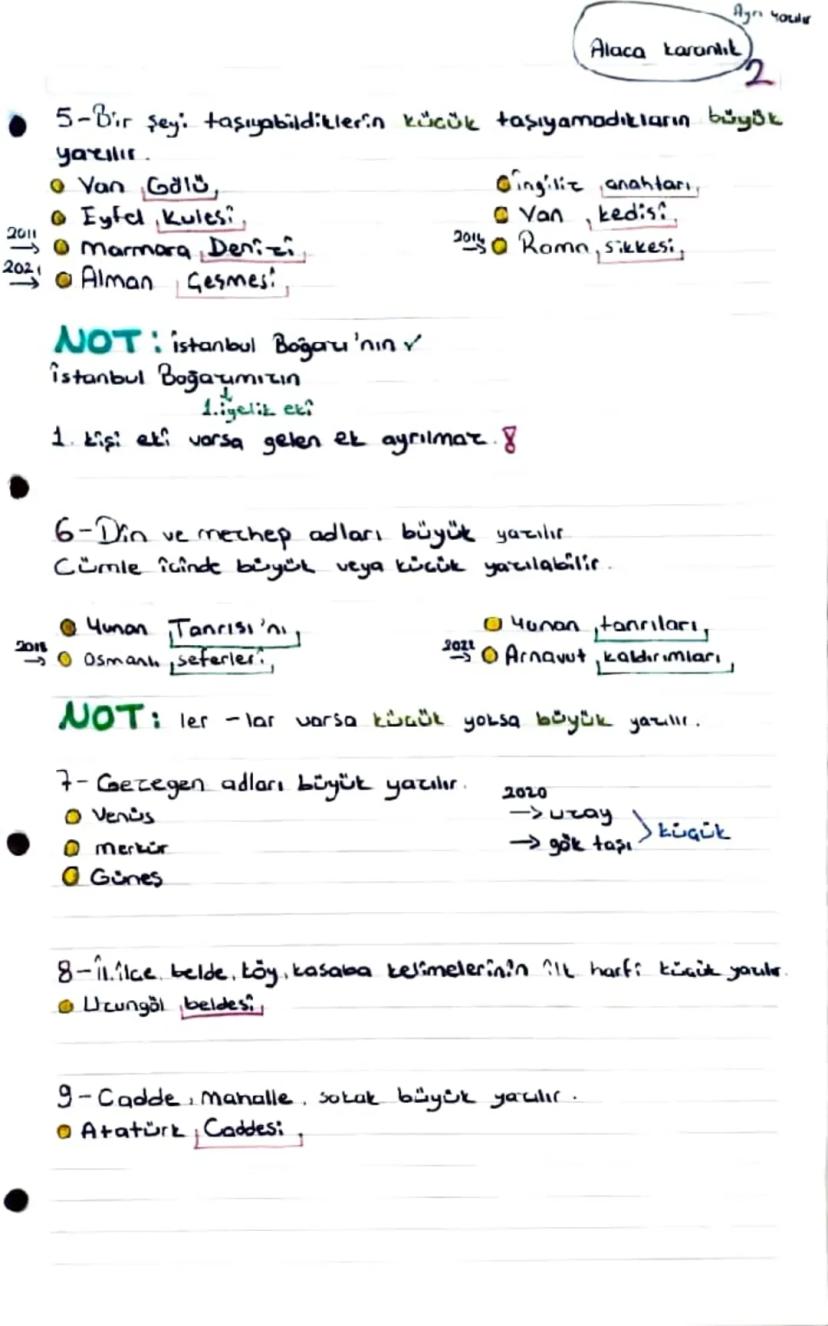 Ayrı yazılır
Alaca karanlık
2
5-Bir şeyi taşıyabildiklerin küçük taşıyamadıkların büyük
yazılır.
Van Gölü
Eyfel Kulesi
2011 → Marmara Denizi
2021 → Alman Çeşmesi
İngiliz anahtarı
Van kedisi
2014 → Roma sikkesi
NOT: İstanbul Boğazı'nın ✓
İstanbul Boğazımızın
↓
1. iyelik eki
1. kişi eki varsa gelen ek ayrılmaz.
6-Din ve mezhep adları büyük yazılır
Cümle içinde büyük veya küçük yazılabilir.
Yunan Tanrısı'nı
2018 → Osmanlı seferleri
Yunan tanrıları
2021 → Arnavut kaldırımları
NOT: ler -lar varsa küçük yoksa büyük yazılır.
7- Gezegen adları büyük yazılır.
Venüs
Merkür
Güneş
2020
→ uzay
→ gök taşı
küçük
8-İl, ilçe, belde, köy, kasaba kelimelerinin ilk harfi küçük yazılır.
Uzungöl beldesi
9-Cadde, Mahalle, sokak büyük yazılır.
Atatürk Caddesi